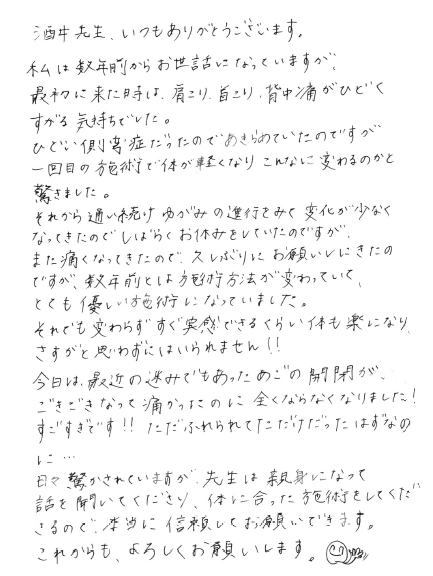 酒井先生、いつもありがとうございます。
私は数年前からお世話になっていますが、
最初に来た時は、肩こり、首こり、背中痛がひどく
すがる気持ちでした。
ひどい側弯症だったのであきらめていたのですが
一回目の施術で体が軽くなり こんなに変わるのかと
驚きました。
それから通い続け ゆがみの進行をみて 変化が少なく
なってきたので しばらくお休みをしていたのですが、
また痛くなってきたので、久しぶりに お願いしにきたの
ですが、数年前とは施術方法が変わっていて、
とても優しい施術になっていました。
それでも変わらず すぐ実感できるくらい体も楽になり、
さすがと思わずにはいられません!!
今日は、最近の悩みでもあった あごの開閉が、
ごきごきなって痛かったのに 全くならなくなりました!
すごすぎです!! ただふれられてただけだったはずなの
に…
日々驚かされていますが、先生は親身になって
話を聞いてくださり、体に合った施術をしてくだ
さるので、本当に信頼してお願いできます。
これからも、よろしくお願いします。